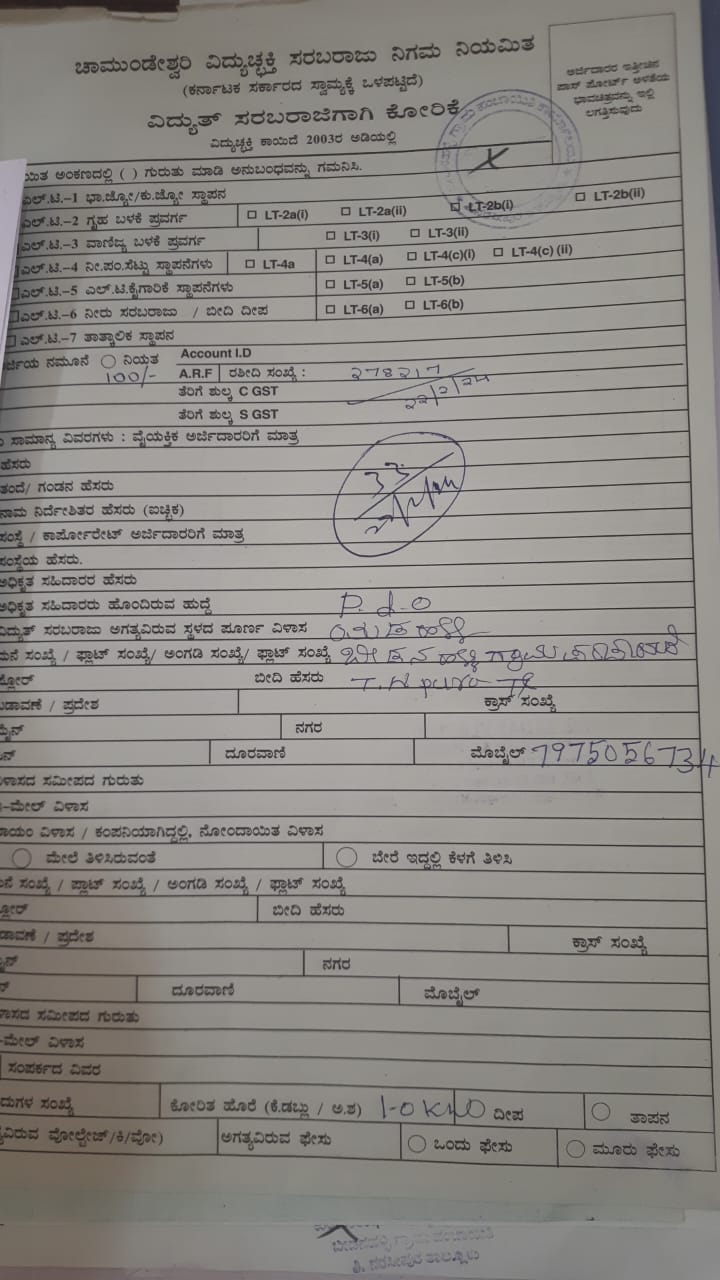 ಚಾಮುಂಡೇಶ್ವರಿ ವಿದ್ಯುಚ್ಛಕ್ತಿ ಸರಬರಾಜು ನಿಗಮ ನಿಯಮಿತ
(ಕರ್ನಾಟಕ ಸರ್ಕಾರದ ಸ್ವಾಮ್ಯಕ್ಕೆ ಒಳಪಟ್ಟಿದೆ)
ವಿದ್ಯುತ್ ಸರಬರಾಜಿಗಾಗಿ ಕೋರಿಕೆ
ವಿದ್ಯುಚ್ಛಕ್ತಿ ಕಾಯಿದೆ 2003ರ ಅಡಿಯಲ್ಲಿ
ಅರ್ಜಿದಾರರ ಇತ್ತೀಚಿನ
ಪಾಸ್ ಪೋರ್ಟ್ ಅಳತೆಯ
ಭಾವಚಿತ್ರವನ್ನು ಇಲ್ಲಿ
ಲಗತ್ತಿಸುವುದು
ಅಂಕಣದಲ್ಲಿ ( ) ಗುರುತು ಮಾಡಿ ಅನುಬಂಧವನ್ನು ಗಮನಿಸಿ.
ಎಲ್.ಟಿ.-1 ಭಾ.ಜ್ಯೋ/ಕು.ಜ್ಯೋ ಸ್ಥಾಪನ
ಎಲ್.ಟಿ.-2 ಗೃಹ ಬಳಕೆ ಪ್ರವರ್ಗ LT-2a(i) LT-2a(ii) LT-2b(i) LT-2b(ii)
ಎಲ್.ಟಿ.-3 ವಾಣಿಜ್ಯ ಬಳಕೆ ಪ್ರವರ್ಗ LT-3(i) LT-3(ii)
ಎಲ್.ಟಿ.-4 ನೀ.ಪಂ.ಸೆಟ್ಟು ಸ್ಥಾಪನೆಗಳು LT-4a LT-4(a) LT-4(c)(i) LT-4(c) (ii)
ಎಲ್.ಟಿ.-5 ಎಲ್.ಟಿ.ಕೈಗಾರಿಕೆ ಸ್ಥಾಪನೆಗಳು LT-5(a) LT-5(b)
ಎಲ್.ಟಿ.-6 ನೀರು ಸರಬರಾಜು / ಬೀದಿ ದೀಪ LT-6(a) LT-6(b)
ಎಲ್.ಟಿ.-7 ತಾತ್ಕಾಲಿಕ ಸ್ಥಾಪನ
ನಮೂನೆ ನಿಯತ Account I.D
100/- A.R.F ರಶೀದಿ ಸಂಖ್ಯೆ : ೨೭೮೩೭೧
೨೨/೨/೨೪
ತೆರಿಗೆ ಶುಲ್ಕ C GST
ತೆರಿಗೆ ಶುಲ್ಕ S GST
ಸಾಮಾನ್ಯ ವಿವರಗಳು : ವೈಯಕ್ತಿಕ ಅರ್ಜಿದಾರರಿಗೆ ಮಾತ್ರ
ಹೆಸರು
ತಂದೆ/ ಗಂಡನ ಹೆಸರು
ನಾಮ ನಿರ್ದೇಶಿತರ ಹೆಸರು (ಐಚ್ಛಿಕ)
ಸಂಸ್ಥೆ / ಕಾರ್ಪೋರೇಟ್ ಅರ್ಜಿದಾರರಿಗೆ ಮಾತ್ರ
ಸಂಸ್ಥೆಯ ಹೆಸರು.
ಅಧಿಕೃತ ಸಹಿದಾರರ ಹೆಸರು
ಅಧಿಕೃತ ಸಹಿದಾರರು ಹೊಂದಿರುವ ಹುದ್ದೆ P.d.O
ವಿದ್ಯುತ್ ಸರಬರಾಜು ಅಗತ್ಯವಿರುವ ಸ್ಥಳದ ಪೂರ್ಣ ವಿಳಾಸ
ಮನೆ ಸಂಖ್ಯೆ / ಫ್ಲಾಟ್ ಸಂಖ್ಯೆ/ ಅಂಗಡಿ ಸಂಖ್ಯೆ/ ಫ್ಲಾಟ್ ಸಂಖ್ಯೆ
ಬೀದಿ ಹೆಸರು T.N pura Tk
ಬಡಾವಣೆ / ಪ್ರದೇಶ ಕ್ರಾಸ್ ಸಂಖ್ಯೆ
ನಗರ
ದೂರವಾಣಿ ಮೊಬೈಲ್ 7975056734
ವಿಳಾಸದ ಸಮೀಪದ ಗುರುತು
-ಮೇಲ್ ವಿಳಾಸ
ವಿಳಾಸ / ಕಂಪನಿಯಾಗಿದ್ದಲ್ಲಿ, ನೋಂದಾಯಿತ ವಿಳಾಸ
ಮೇಲೆ ತಿಳಿಸಿರುವಂತೆ ಬೇರೆ ಇದ್ದಲ್ಲಿ ಕೆಳಗೆ ತಿಳಿಸಿ
ಸಂಖ್ಯೆ / ಪ್ಲಾಟ್ ಸಂಖ್ಯೆ / ಅಂಗಡಿ ಸಂಖ್ಯೆ / ಫ್ಲಾಟ್ ಸಂಖ್ಯೆ
ಬೀದಿ ಹೆಸರು
/ ಪ್ರದೇಶ ಕ್ರಾಸ್ ಸಂಖ್ಯೆ
ನಗರ
ದೂರವಾಣಿ ಮೊಬೈಲ್
ಸಮೀಪದ ಗುರುತು
-ಮೇಲ್ ವಿಳಾಸ
ಸಂಪರ್ಕದ ವಿವರ
ಸಂಖ್ಯೆ ಕೋರಿತ ಹೊರೆ (ಕೆ.ಡಬ್ಲು / ಅ.ಶ) 1-0 KW ದೀಪ ತಾಪನ
ವೋಲ್ಟೇಜ್/ಕಿ/ವೋ) ಅಗತ್ಯವಿರುವ ಫೇಸು ಒಂದು ಫೇಸು ಮೂರು ಫೇಸು
ತಿ. ನರಸೀಪುರ ತಾಲ್ಲೂಕು